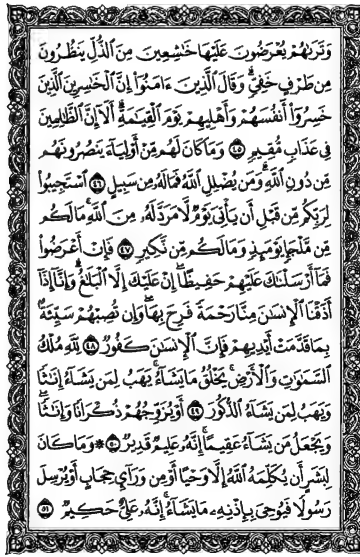 وَتَرَىٰهُمْ يُعْرَضُونَ عَلَيْهَا خَٰشِعِينَ مِنَ ٱلذُّلِّ يَنظُرُونَ
مِن طَرْفٍ خَفِيٍّ ۗ وَقَالَ ٱلَّذِينَ ءَامَنُوٓا۟ إِنَّ ٱلْخَٰسِرِينَ ٱلَّذِينَ
خَسِرُوٓا۟ أَنفُسَهُمْ وَأَهْلِيهِمْ يَوْمَ ٱلْقِيَٰمَةِ ۗ أَلَآ إِنَّ ٱلظَّٰلِمِينَ
فِى عَذَابٍ مُّقِيمٍ ۝٤٥ وَمَا كَانَ لَهُم مِّنْ أَوْلِيَآءَ يَنصُرُونَهُم
مِّن دُونِ ٱللَّهِ ۗ وَمَن يُضْلِلِ ٱللَّهُ فَمَا لَهُۥ مِن سَبِيلٍ ۝٤٦ ٱسْتَجِيبُوا۟
لِرَبِّكُم مِّن قَبْلِ أَن يَأْتِىَ يَوْمٌ لَّا مَرَدَّ لَهُۥ مِنَ ٱللَّهِ ۚ مَا لَكُم
مِّن مَّلْجَإٍ يَوْمَئِذٍ وَمَا لَكُم مِّن نَّكِيرٍ ۝٤٧ فَإِنْ أَعْرَضُوا۟
فَمَآ أَرْسَلْنَٰكَ عَلَيْهِمْ حَفِيظًا ۖ إِنْ عَلَيْكَ إِلَّا ٱلْبَلَٰغُ ۗ وَإِنَّآ إِذَآ
أَذَقْنَا ٱلْإِنسَٰنَ مِنَّا رَحْمَةً فَرِحَ بِهَا ۖ وَإِن تُصِبْهُمْ سَيِّئَةٌۢ
بِمَا قَدَّمَتْ أَيْدِيهِمْ فَإِنَّ ٱلْإِنسَٰنَ كَفُورٌ ۝٤٨ لِّلَّهِ مُلْكُ
ٱلسَّمَٰوَٰتِ وَٱلْأَرْضِ ۚ يَخْلُقُ مَا يَشَآءُ ۚ يَهَبُ لِمَن يَشَآءُ إِنَٰثًا
وَيَهَبُ لِمَن يَشَآءُ ٱلذُّكُورَ ۝٤٩ أَوْ يُزَوِّجُهُمْ ذُكْرَانًا وَإِنَٰثًا ۖ
وَيَجْعَلُ مَن يَشَآءُ عَقِيمًا ۚ إِنَّهُۥ عَلِيمٌ قَدِيرٌ ۝٥٠ ۞ وَمَا كَانَ
لِبَشَرٍ أَن يُكَلِّمَهُ ٱللَّهُ إِلَّا وَحْيًا أَوْ مِن وَرَآئِ حِجَابٍ أَوْ يُرْسِلَ
رَسُولًا فَيُوحِىَ بِإِذْنِهِۦ مَا يَشَآءُ ۚ إِنَّهُۥ عَلِىٌّ حَكِيمٌ ۝٥١